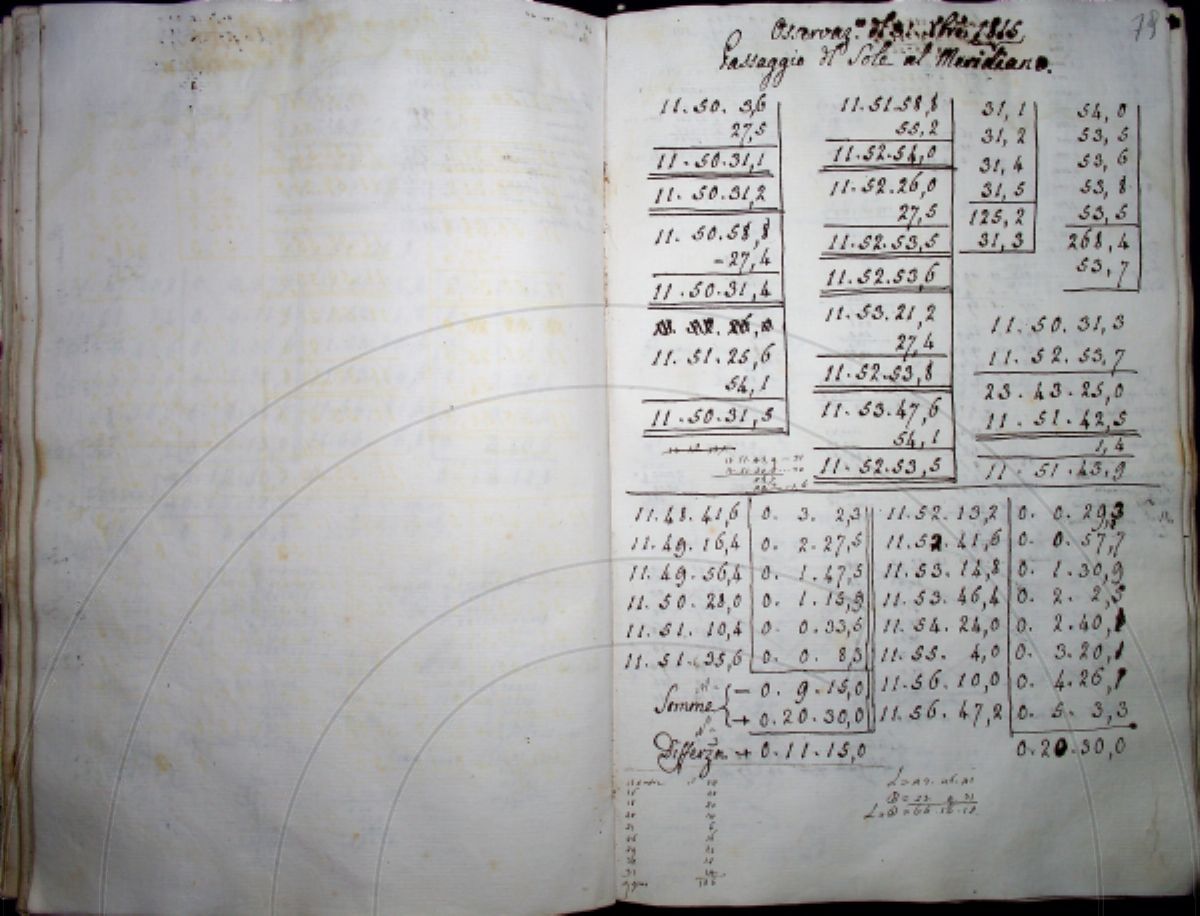 78
Osservaz.ⁿ
Passaggio del Sole al Meridiano.
11. 50. 3,6
27,5
11. 50. 31,1
11. 50. 31,2
11. 50. 58,8
- 27,4
11. 50. 31,4
11. 51. 25,6
54,1
11. 50. 31,5
11. 51. 58,8
55,2
11. 52. 54,0
11. 52. 26,0
27,5
11. 52. 53,5
11. 52. 53,6
11. 53. 21,2
27,4
11. 52. 53,8
11. 53. 47,6
54,1
11. 52. 53,5
31,1
31,2
31,4
31,5
125,2
31,3
54,0
53,5
53,6
53,8
53,5
268,4
53,7
11. 50. 31,3
11. 52. 53,7
23. 43. 25,0
11. 51. 42,5
1,4
11. 51. 43,9
11. 48. 41,6 0. 3. 2,3 11. 52. 13,2 0. 0. 29,3
11. 49. 16,4 0. 2. 27,5 11. 52. 41,6 0. 0. 57,7
11. 49. 56,4 0. 1. 47,5 11. 53. 14,8 0. 1. 30,9
11. 50. 28,0 0. 1. 15,9 11. 53. 46,4 0. 2. 2,5
11. 51. 10,4 0. 0. 33,5 11. 54. 24,0 0. 2. 40,1
11. 51. 35,6 0. 0. 8,3 11. 55. 4,0 0. 3. 20,1
Somme - 0. 9. 15,0 11. 56. 10,0 0. 4. 26,1
+ 0. 20. 30,0 11. 56. 47,2 0. 5. 3,3
Differza + 0. 11. 15,0 0. 20. 30,0